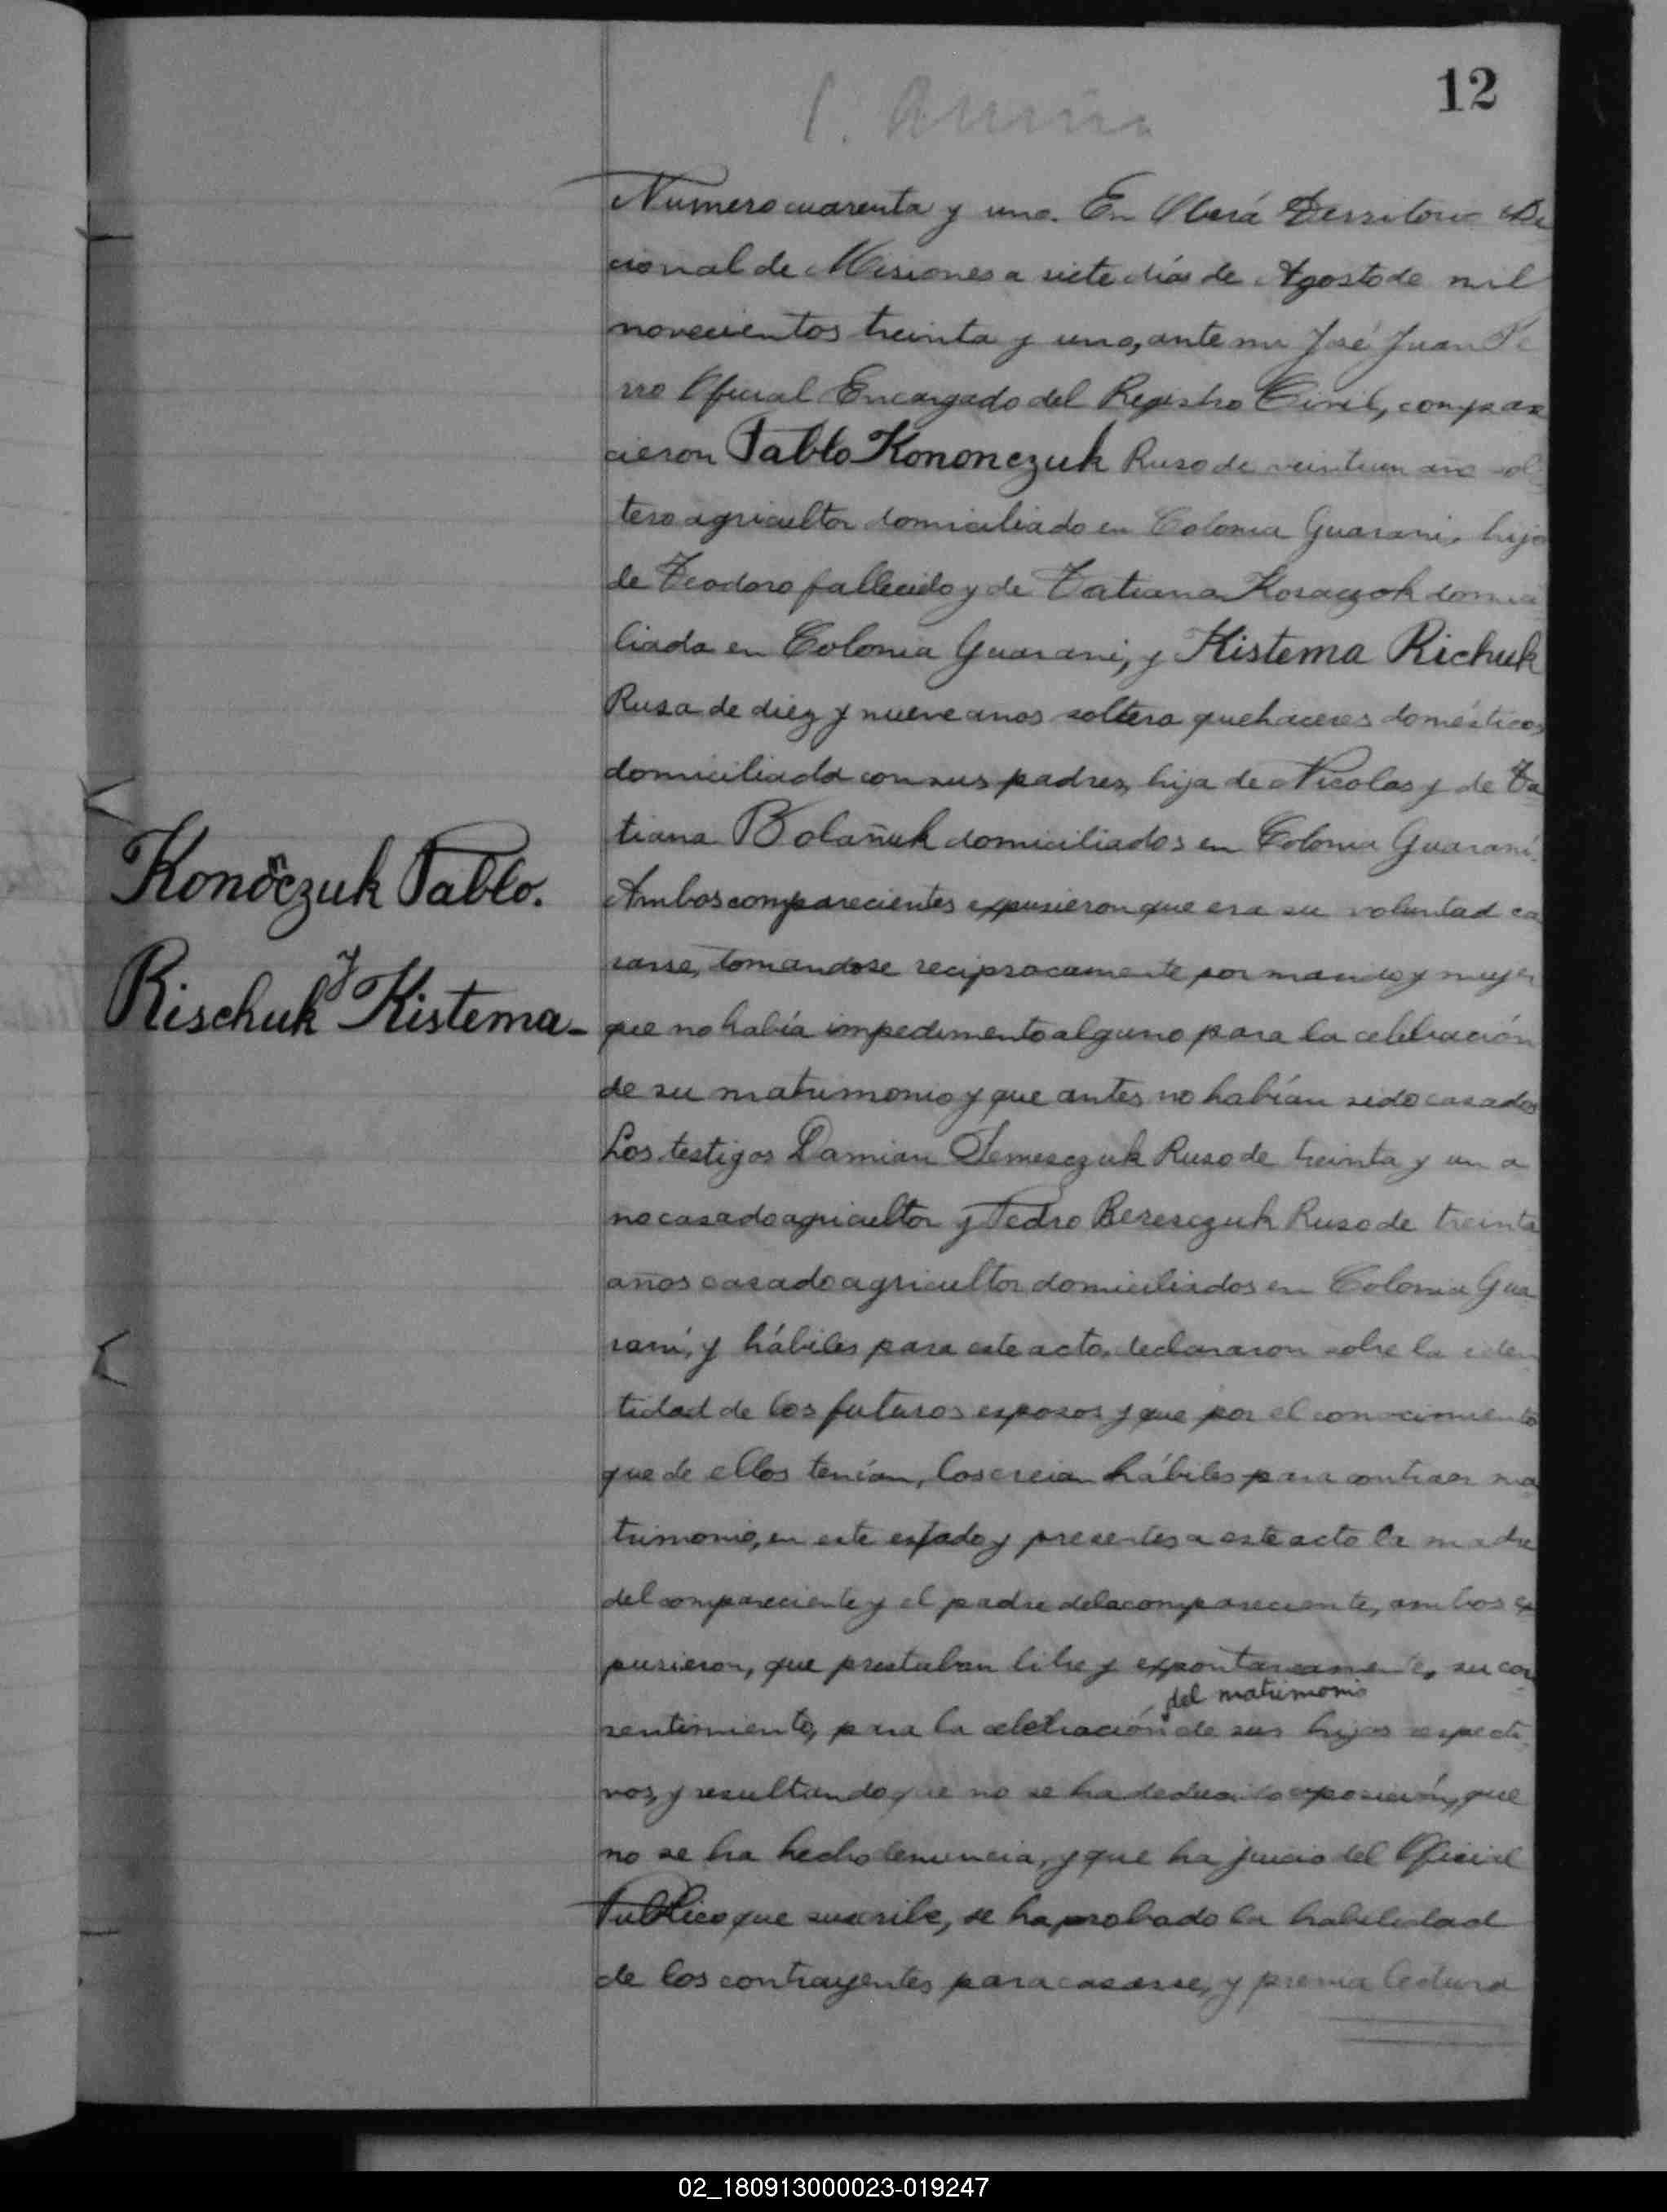 12
Numero cuarenta y uno. En Oberá Territorio Na
cional de Misiones a siete días de Agosto de mil
novecientos treinta y uno, ante mi José Juan Pe
rro Oficial Encargado del Registro Civil, compare
cieron Pablo Kononczuk Ruso de veintiun año sol
tero agricultor domiciliado en Colonia Guarani, hijo
de Teodoro fallecido y de Tatiana Kosaczok domici
liada en Colonia Guarani, y Kistema Richuk
Rusa de diez y nueve anos soltera quehaceres domésticos
domiciliada con sus padres, hija de Nicolas y de Ta
tiana Bolañuk domiciliados en Colonia Guaraní.
Konönczuk Pablo.
y
Rischuk Kistema-
Ambos comparecientes expusieron que era su voluntad ca
sarse, tomandose reciprocamente por marido y mujer
que no había impedimento alguno para la celebración
de su matrimonio y que antes no habían sido casados
Los testigos Damian Semesczuk Ruso de treinta y un a
no casado agricultor y Pedro Beresczuk Ruso de treinta
años casado agricultor domiciliados en Colonia Gua
raní, y hábiles para este acto, declararon sobre la iden
tidad de los futuros esposos y que por el conocimiento
que de ellos tenían, los creian hábiles para contraer ma
trimonio, en este estado y presentes a este acto la madre
del compareciente y el padre de la compareciente, ambos ex
pusieron, que prestaban libre y expontaneamente, su con
del matrimonio
sentimiento, para la celebración de sus hijos respecti
vos, y resultando que no se ha deducido oposición, que
no se ha hecho denuncia, y que ha juicio del Oficial
Publico que suscribe, se ha probado la habilidad
de los contrayentes para casarse, y previa lectura
02_180913000023-019247